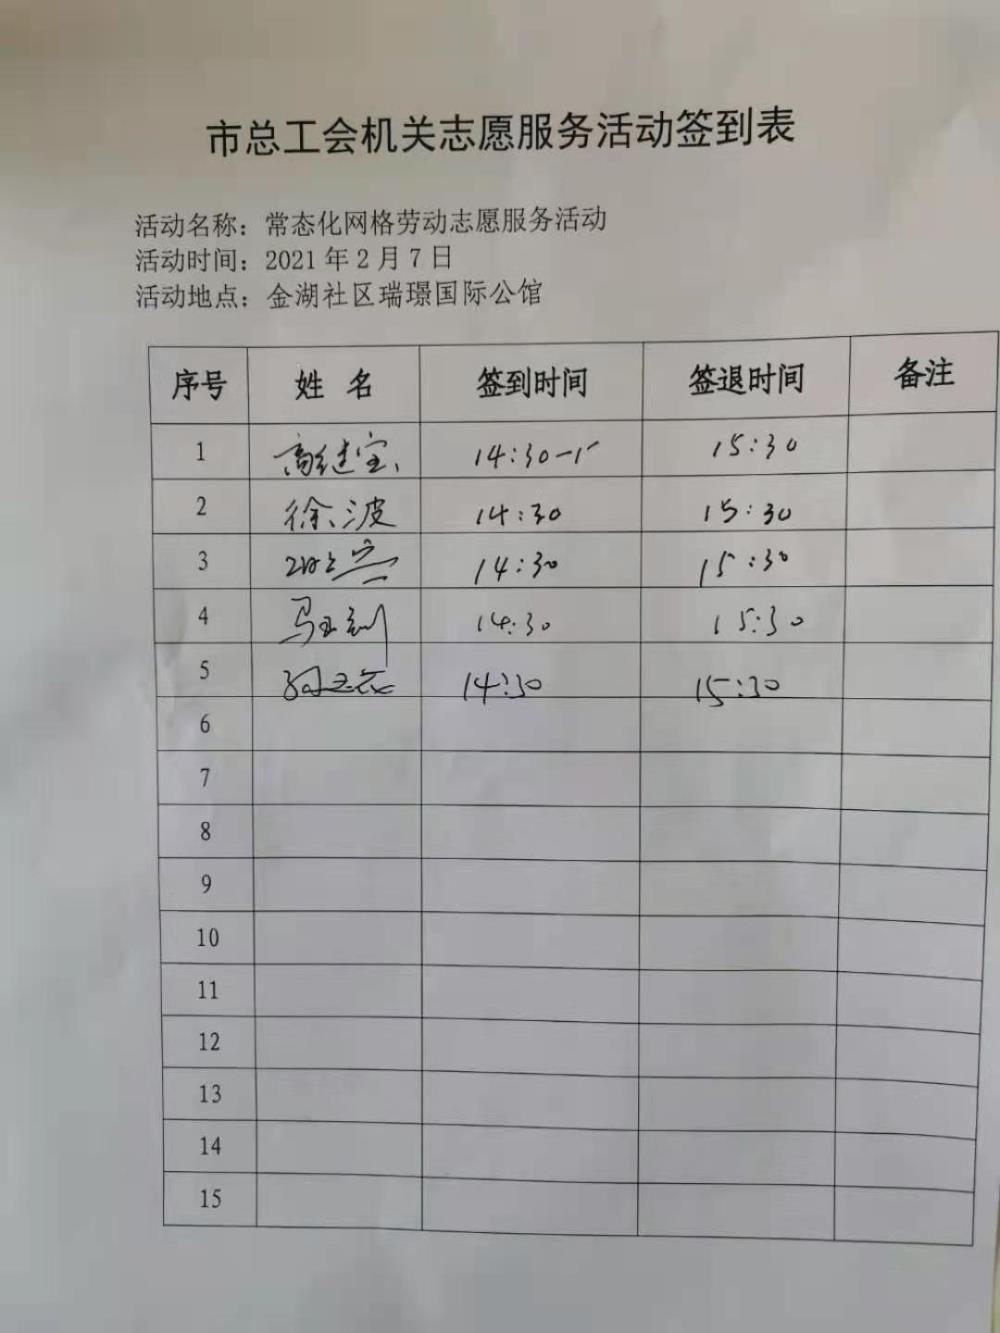 市总工会机关志愿服务活动签到表
活动名称：常态化网格劳动志愿服务活动
活动时间：2021年2月7日
活动地点：金湖社区瑞璟国际公馆
序号 姓 名 签到时间 签退时间 备注
1 高继宝 14:30 15:30
2 徐波 14:30 15:30
3 14:30 15:30
4 马玉刚 14:30 15:30
5 14:30 15:30
6
7
8
9
10
11
12
13
14
15